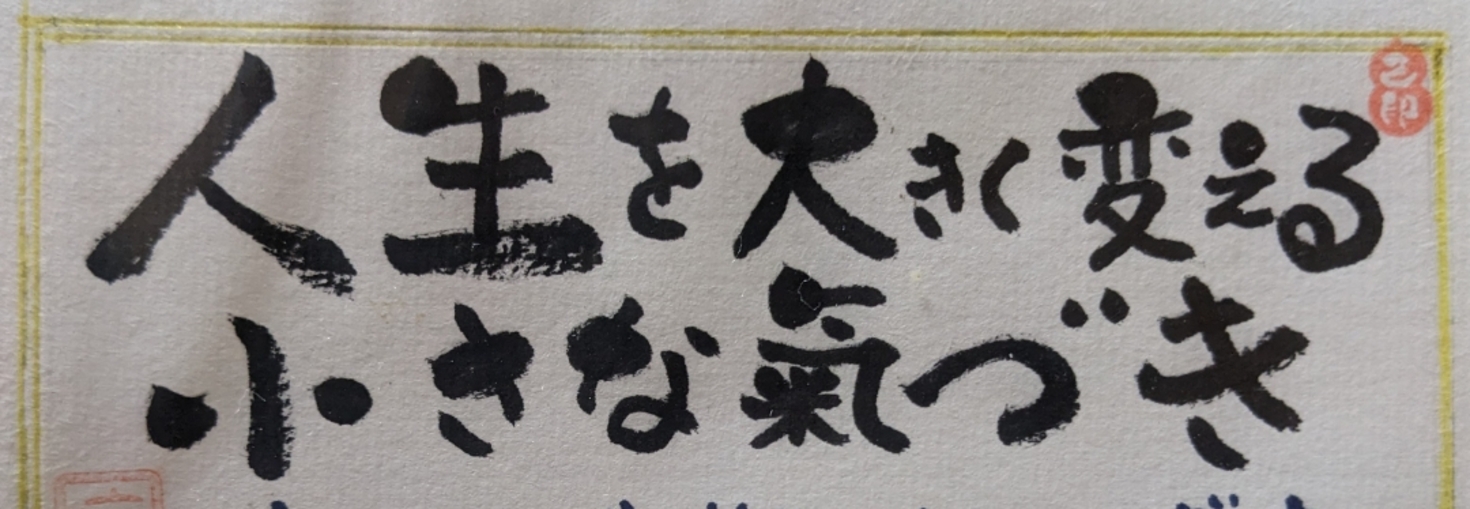 人生を大きく変える
小さな氣づき